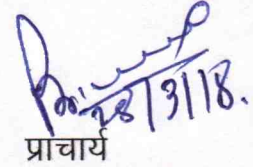 28/3/18.
प्राचार्य